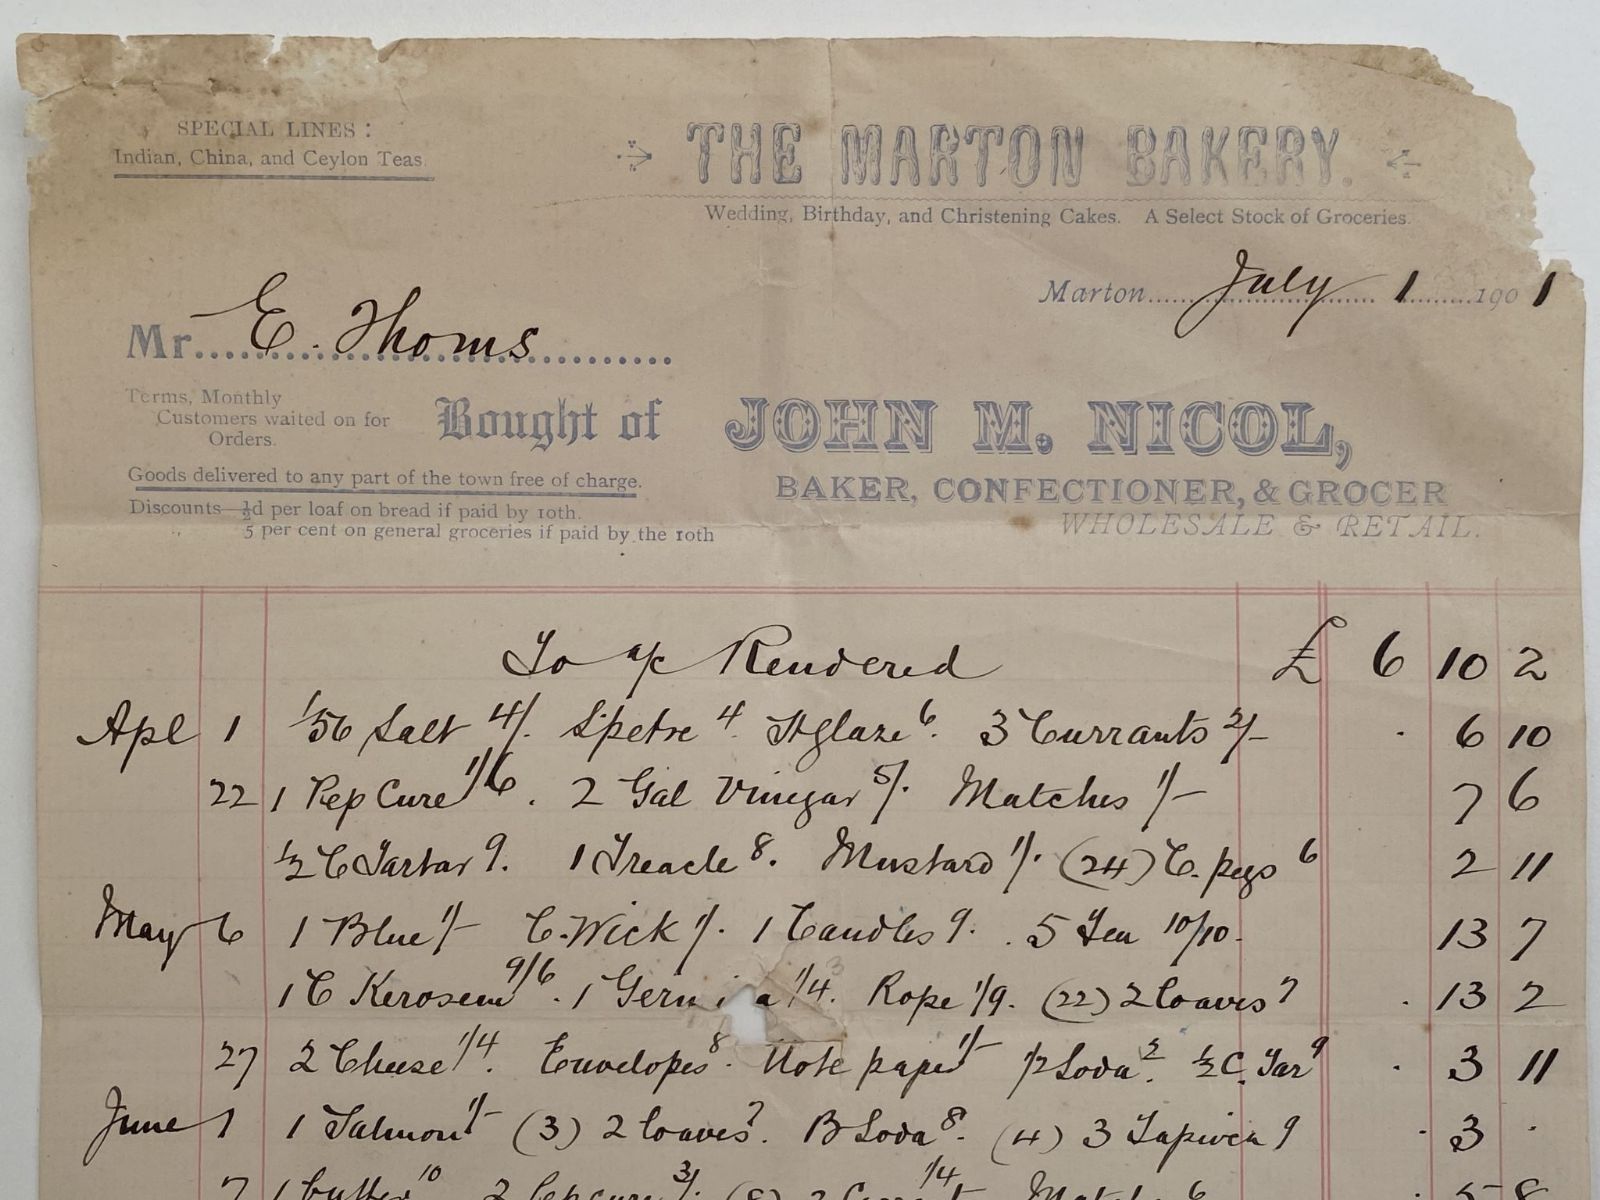 SPECIAL LINES:
Indian, China, and Ceylon Teas.
THE MARTON BAKERY.
Wedding, Birthday, and Christening Cakes. A Select Stock of Groceries.
Marton......July......1......1901
Mr....E. Thoms....
Terms, Monthly
Customers waited on for
Orders.
Bought of JOHN M. NICOL,
Goods delivered to any part of the town free of charge.
BAKER, CONFECTIONER, & GROCER
Discounts—½d per loaf on bread if paid by 10th.
WHOLESALE & RETAIL.
5 per cent on general groceries if paid by the 10th
To a/c Rendered £ 6 10 2
Apl 1 1/56 Salt 4/. S'petre 4. Stglaze 6. 3 Currants 2/- . 6 10
22 1 Pep Cure 1/6. 2 Gal Vinegar 5/. Matches 1/- 7 6
½ C Tartar 9. 1 Treacle 8. Mustard 1/. (24) C. pegs 6 2 11
May 6 1 Blue 1/- C. Wick 1/. 1 Candles 9. 5 Tea 10/10. 13 7
1 C Kerosene 9/6. 1 Ger 1/4. Rope 1/9. (22) 2 loaves 7 . 13 2
27 2 Cheese 1/4. Envelopes 8. Note paper 1/- Soda 2. ½ C. Tar 9 . 3 11
June 1 1 Salmon 1/- (3) 2 loaves 7. B Soda 8. (4) 3 Tapioca 9 . 3 .
7 1 butter 10 2 3/. (8) 2 1/4 Matches 6 5 8